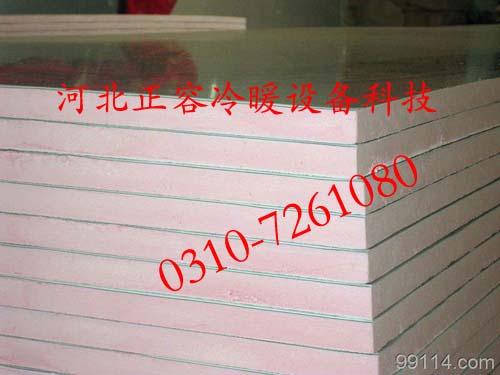 河北正容冷暖设备科技
0310-7261080
99114.com